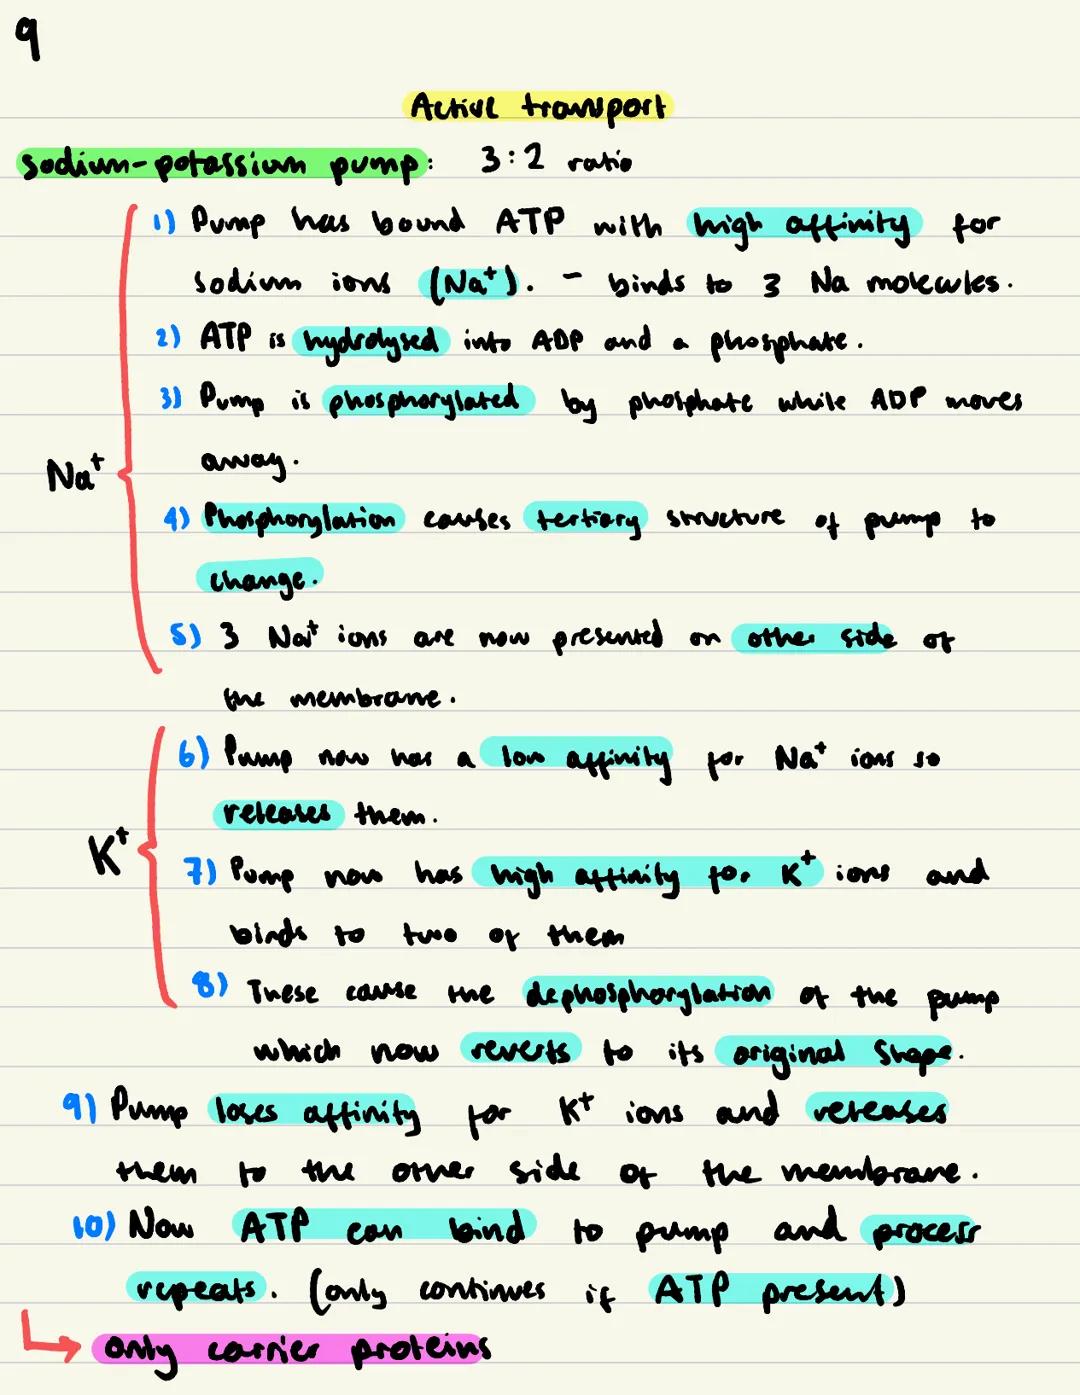 9
Active transport
sodium-potassium pump: 3:2 ratio
1) Pump has bound ATP with high affinity for
sodium ions (Na⁺). - binds to 3 Na molecules.
2) ATP is hydrolysed into ADP and a phosphate.
3) Pump is phosphorylated by phosphate while ADP moves
away.
Na⁺
4) Phosphorylation causes tertiary structure of pump to
change.
5) 3 Na⁺ ions are now presented on other side of
the membrane.
6) Pump now has a low affinity for Na⁺ ions so
releases them.
K⁺
7) Pump now has high affinity for K⁺ ions and
binds to two of them
8) These cause the dephosphorylation of the pump
which now reverts to its original shape.
9) Pump loses affinity for K⁺ ions and releases
them to the other side of the membrane.
10) Now ATP can bind to pump and process
repeats. (only continues if ATP present)
only carrier proteins